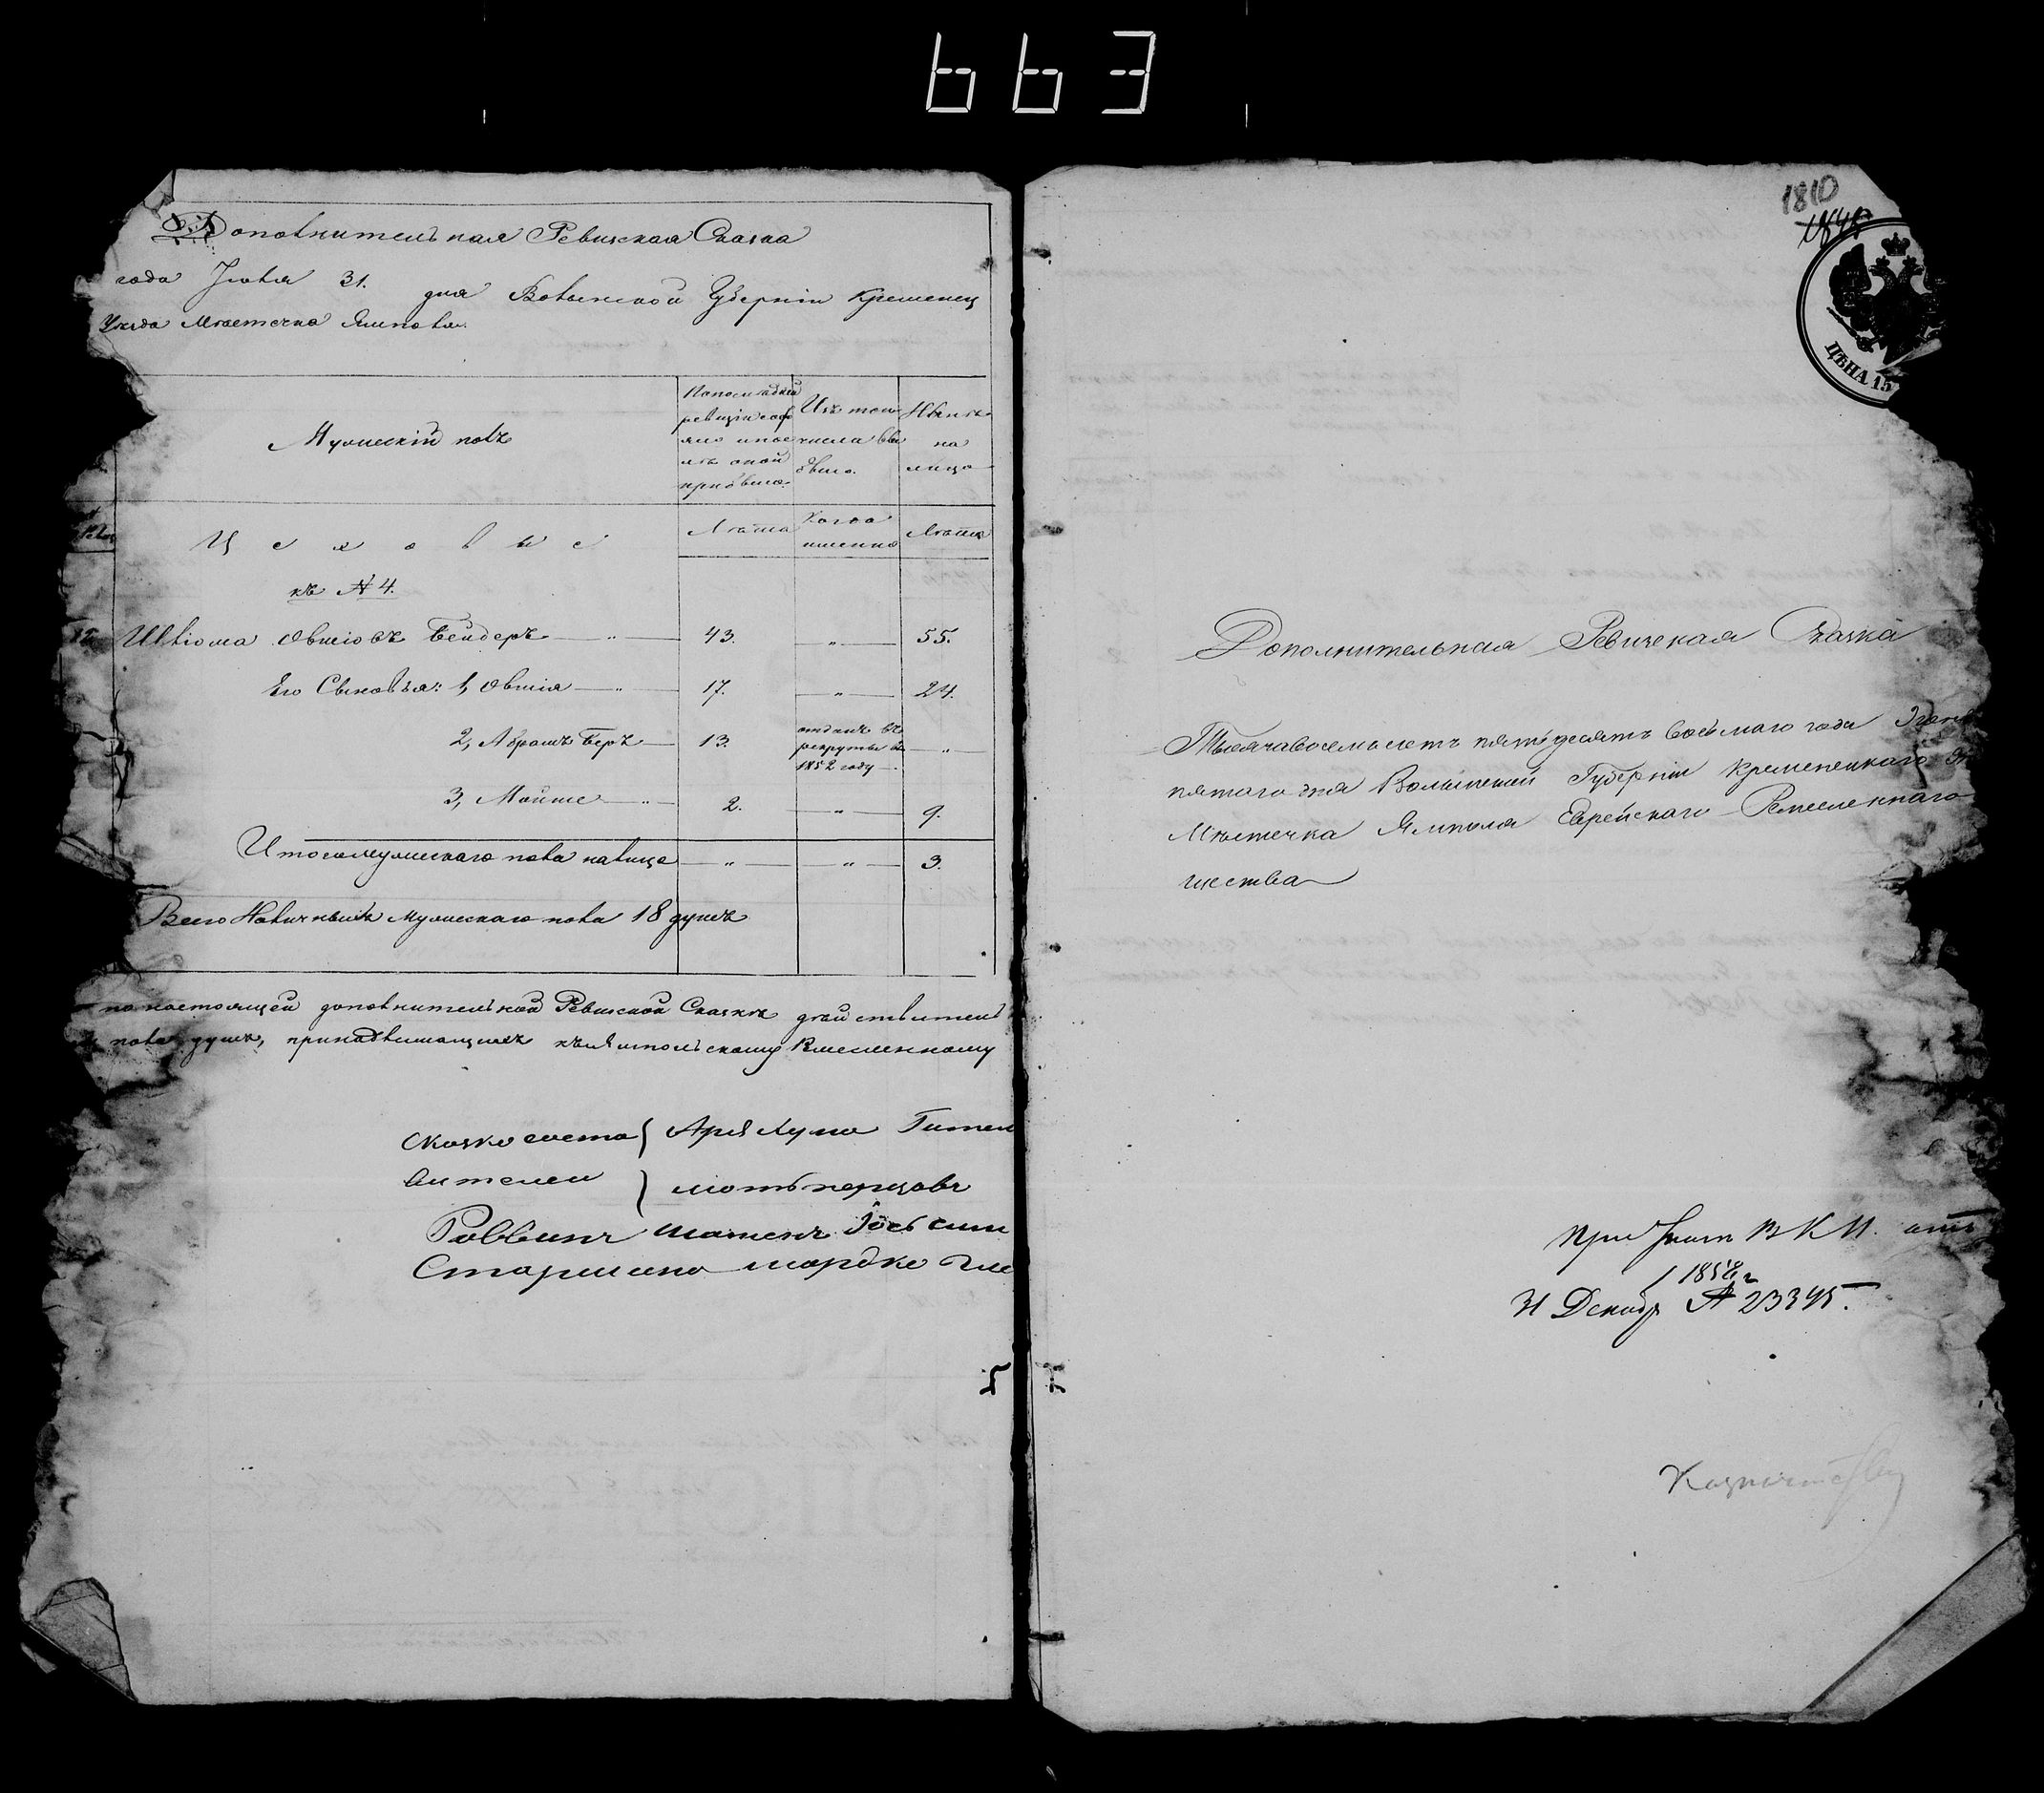 663
Дополнительная Ревизская Сказка
года Июля 31. дня Волынской Губерніи Кременец
Уезда Местечка Ямполя
Мужескій полъ
По последней ревизіи состояло и после оной прибыло.
Изъ того числа выбыло.
Ныне на лицо
Цеховые
Лета
Когда именно
Лета
къ № 4.
Шліома Овшіовъ Бендеръ — " — 43. — " — 55.
Его Сыновья: 1, Овшія — " — 17. — " — 24.
2, Абрамъ Беръ — 13. отданъ въ рекруты въ 1852 году — " —
3, Мойше — " — 2. — " — 9.
Итого мужескаго пола налицо — " — " — 3.
Всего Наличныхъ мужескаго пола 18 душъ
по настоящей дополнительной Ревизской Сказке действитель
пола душъ, принадлежащихъ къ Ямпольскому Ремесленному
Сказкососта
вителей
Мотьперцовъ
Раввинъ
Старшина Мордко
1810
ЦѢНА 15
Дополнительная Ревизская Сказка
Тысяча восемь сотъ пятьдесятъ восьмаго года
пятаго дня Волынской Губерніи Кременецкаго
Местечка Ямполя Еврейскаго Ремесленнаго
щества
При
1858 г
31 Декабр № 23345.